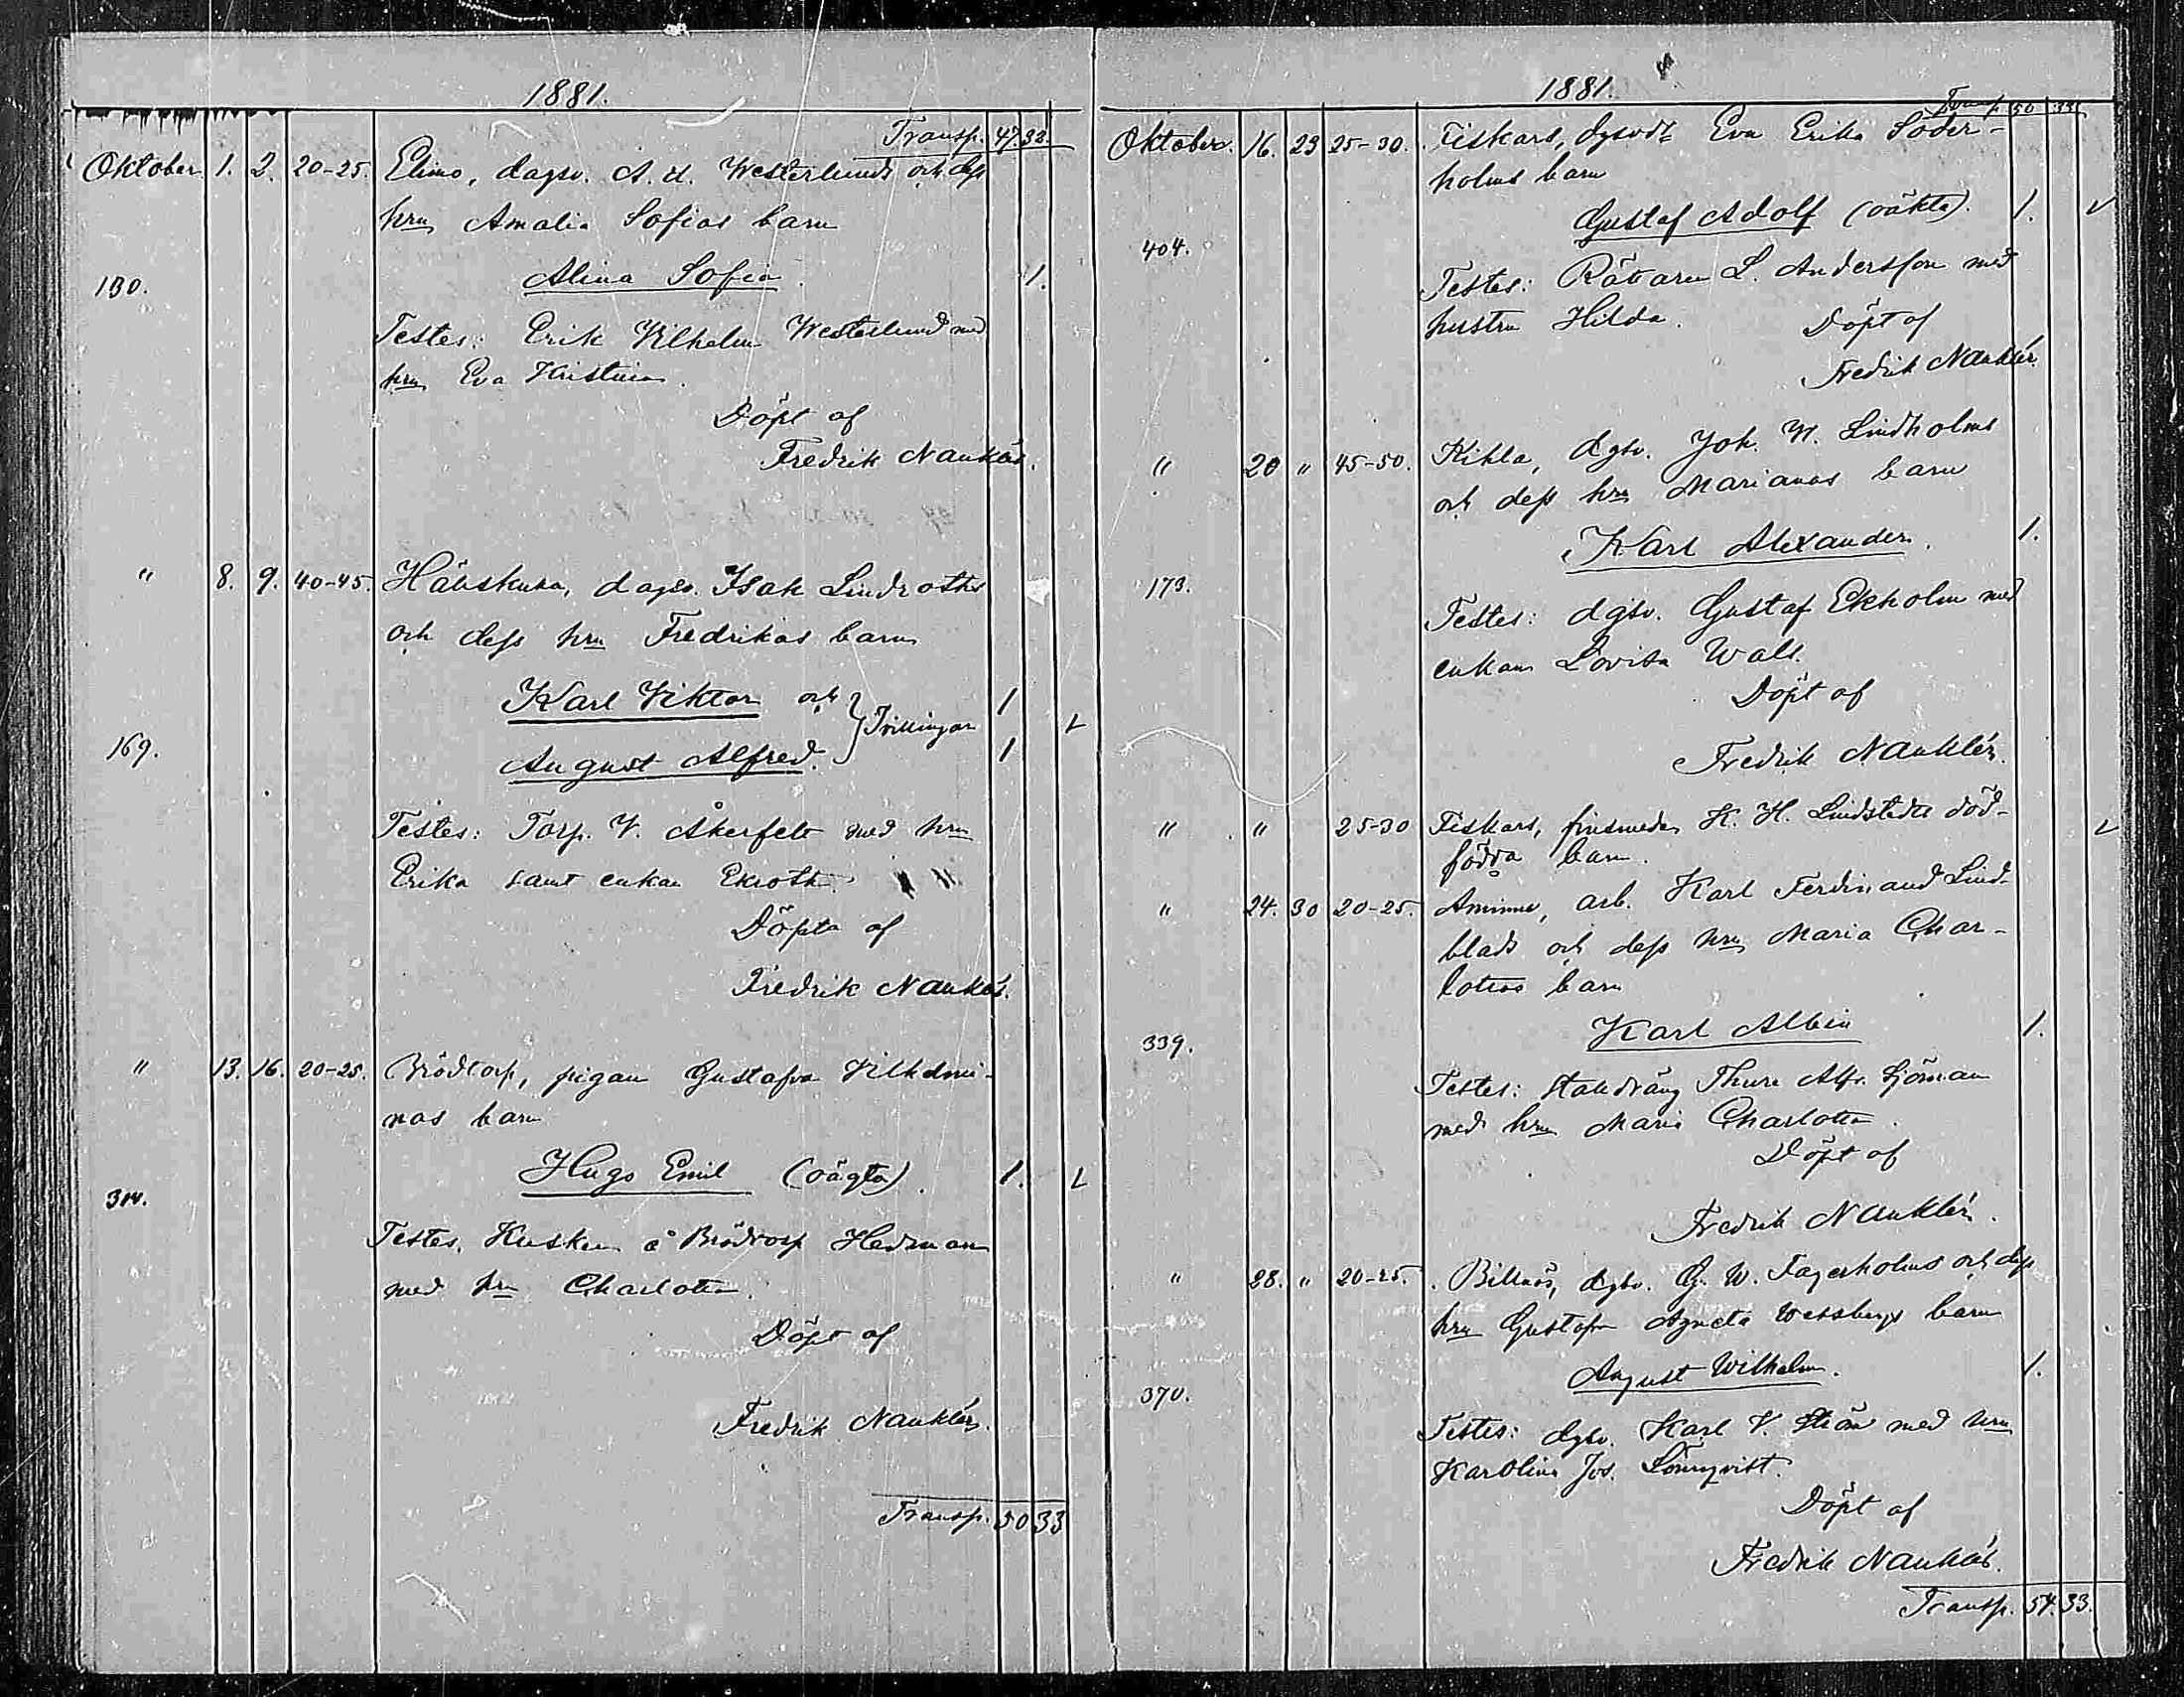 1881.
Transp. 47. 32.
Oktober. 1. 2. 20-25. Elimo, dagsv. A. H. Westerlunds och dess
hru Amalia Sofias barn
130. Alina Sofia. 1.
Testes: Erik Vilhelm Westerlund med
hru Eva Kristina.
Döpt af
Fredrik Nauklér.
" 8. 9. 40-45. dagsv. Isak Lindroths
och dess hru Fredrikas barn
Karl Viktor och 1
169. August Alfred. } Tvillingar 1
Testes: Torp. V. Åkerfelt med hru
Erika samt enkan Ekroth.
Döpta af
Fredrik Nauklér.
" 13. 16. 20-25. Brödtorp, pigan Gustafva Vilhelmi-
nas barn
Hugo Emil (oägta). 1.
314.
Testes. Kusken å Brödtorp Hedman
med hru Charlotta.
Döpt af
Fredrik Nauklér.
Transp. 50 33
1881.
Transp. 50 33
Oktober. 16. 23 25-30. Fiskars, Eva Erika Söder-
holms barn
Gustaf Adolf (oäkta). 1.
404.
Testes: Rättaren L. Andersson med
hustru Hilda. Döpt af
Fredrik Nauklér.
" 20 " 45-50. Kihla, dgsv. Joh. W. Lindholms
och dess hru Marianas barn
Karl Alexander. 1.
173.
Testes: dgsv. Gustaf Ekholm med
enkan Lovisa Wall.
Döpt af
Fredrik Nauklér.
" " 25-30 Fiskars, finsmeden K. H. Lindstedts död-
födda barn.
" 24. 30 20-25. Åminne, arb. Karl Ferdinand Lind-
blads och dess hru Maria Char-
lottas barn
339. Karl Albin 1.
Testes: Stalldräng Thure Alfr. Sjöman
med hru Maria Charlotta.
Döpt af
Fredrik Nauklér.
" 28. " 20-25. Billnäs, dgsv. G. W. Fagerholms och dess
hru Gustafva Agneta barn
August Wilhelm. 1.
370.
Testes: dgsv. Karl V. Ström med hru
Karolina Jos. Lönnqvist.
Döpt af
Fredrik Nauklér.
Transp. 54. 33.